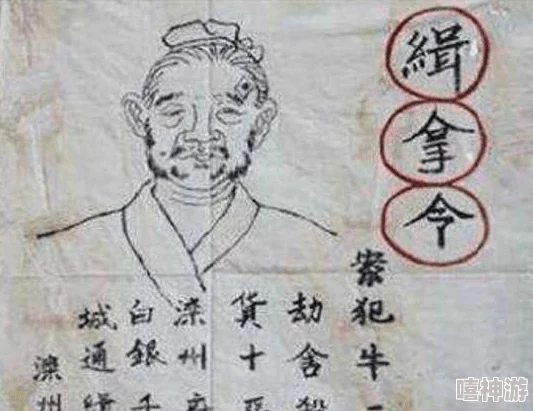 緝拿令
案犯牛
劫舍殺
貨十
滦州
白銀千
城通緝
滦州
嘻神游